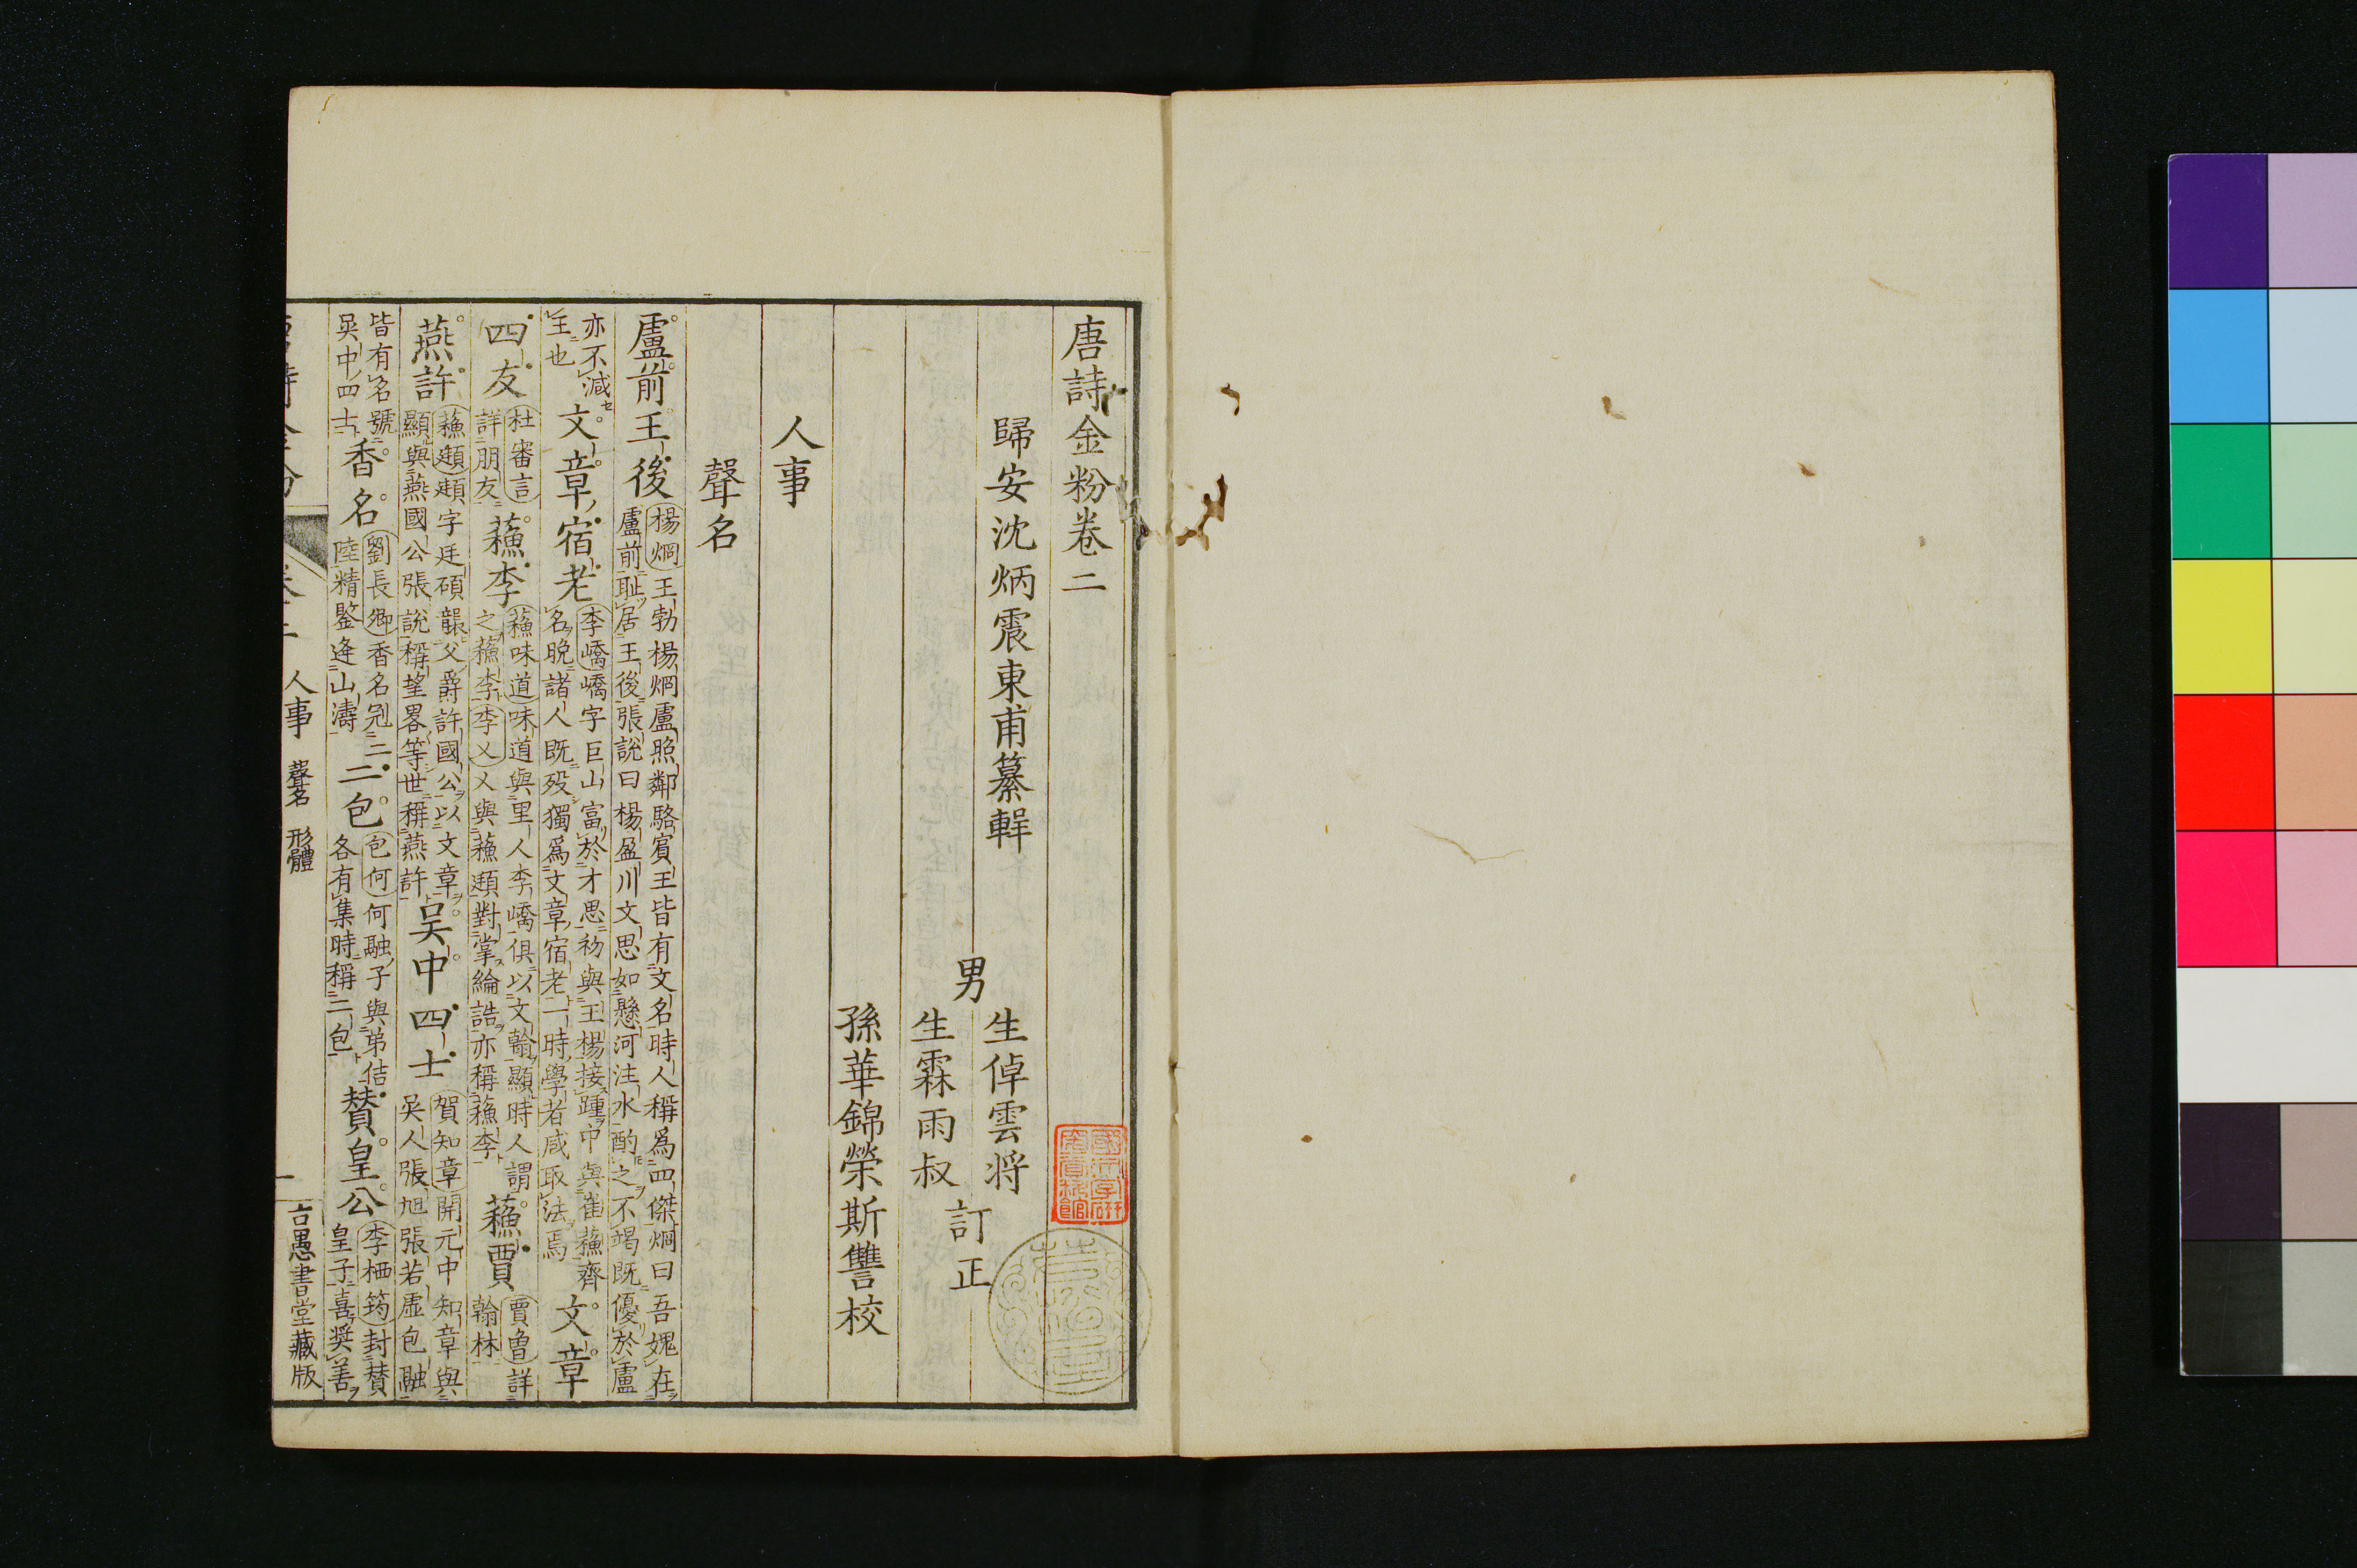 唐詩金粉卷二
歸安沈炳震東甫纂輯
男
生倬雲将
生霖雨叔
訂正
孫華錦榮斯讐校
人事
聲名
盧前王後
楊烱王勃楊烱盧照鄰駱賓王皆有文名時人稱爲四傑烱曰吾媿在
盧前耻居王後張說曰楊盈川文思如懸河注水酌之不竭既優於盧
亦不減
王也
文章宿老
李嶠嶠字巨山富於才思初與王楊接踵中與崔蘓齊
名晚諸人既歿獨爲文章宿老一時學者咸取法焉
文章
四友
杜審言
詳朋友
蘓李
蘓味道味道與里人李嶠俱以文翰顯時人謂
之蘓李李乂乂與蘓頲對掌綸誥亦稱蘓李
蘓賈
賈曾詳
翰林
燕許
蘓頲頲字廷碩襲父爵許國公以文章
顯與燕國公張說稱望畧等世稱燕許
吳中四士
賀知章開元中知章與
吳人張旭張若虛包融
皆有名號
吳中四士
香名
劉長卿香名冠二
陸精鑒逄山濤
二包
包何何融子與弟佶
各有集時稱二包
賛皇公
李栖筠封賛
皇子喜奨善
人事 聲名 形體
一
古愚書堂藏版